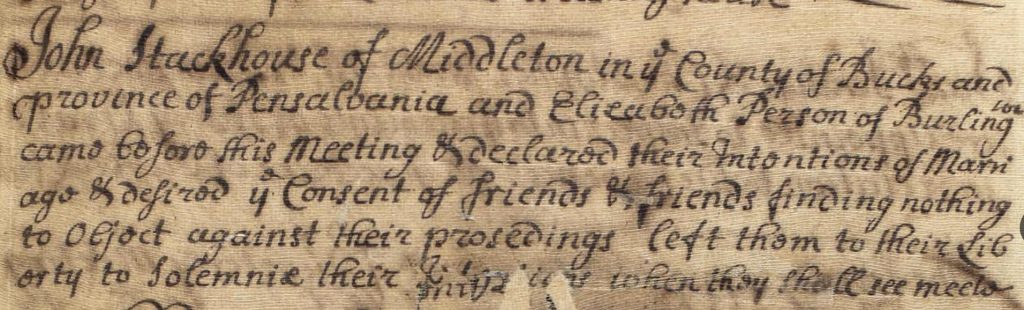 John Stackhouse of Middleton in yᵉ County of Bucks and
province of Pensalvania and Elizaboth Person of Burlington
came before this Meeting & declared their Intentions of Marri
age & desired yᵉ Consent of friends & friends finding nothing
to Object against their prosedings left them to their Lib
erty to Solemnize their when they shall see meete